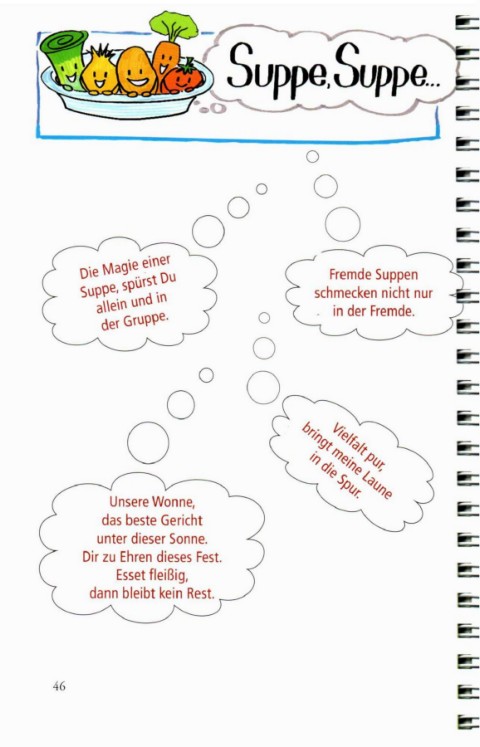 Suppe, Suppe...
Die Magie einer
Suppe, spürst Du
allein und in
der Gruppe.
Fremde Suppen
schmecken nicht nur
in der Fremde.
Vielfalt pur,
bringt meine Laune
in die Spur.
Unsere Wonne,
das beste Gericht
unter dieser Sonne.
Dir zu Ehren dieses Fest.
Esset fleißig,
dann bleibt kein Rest.
46